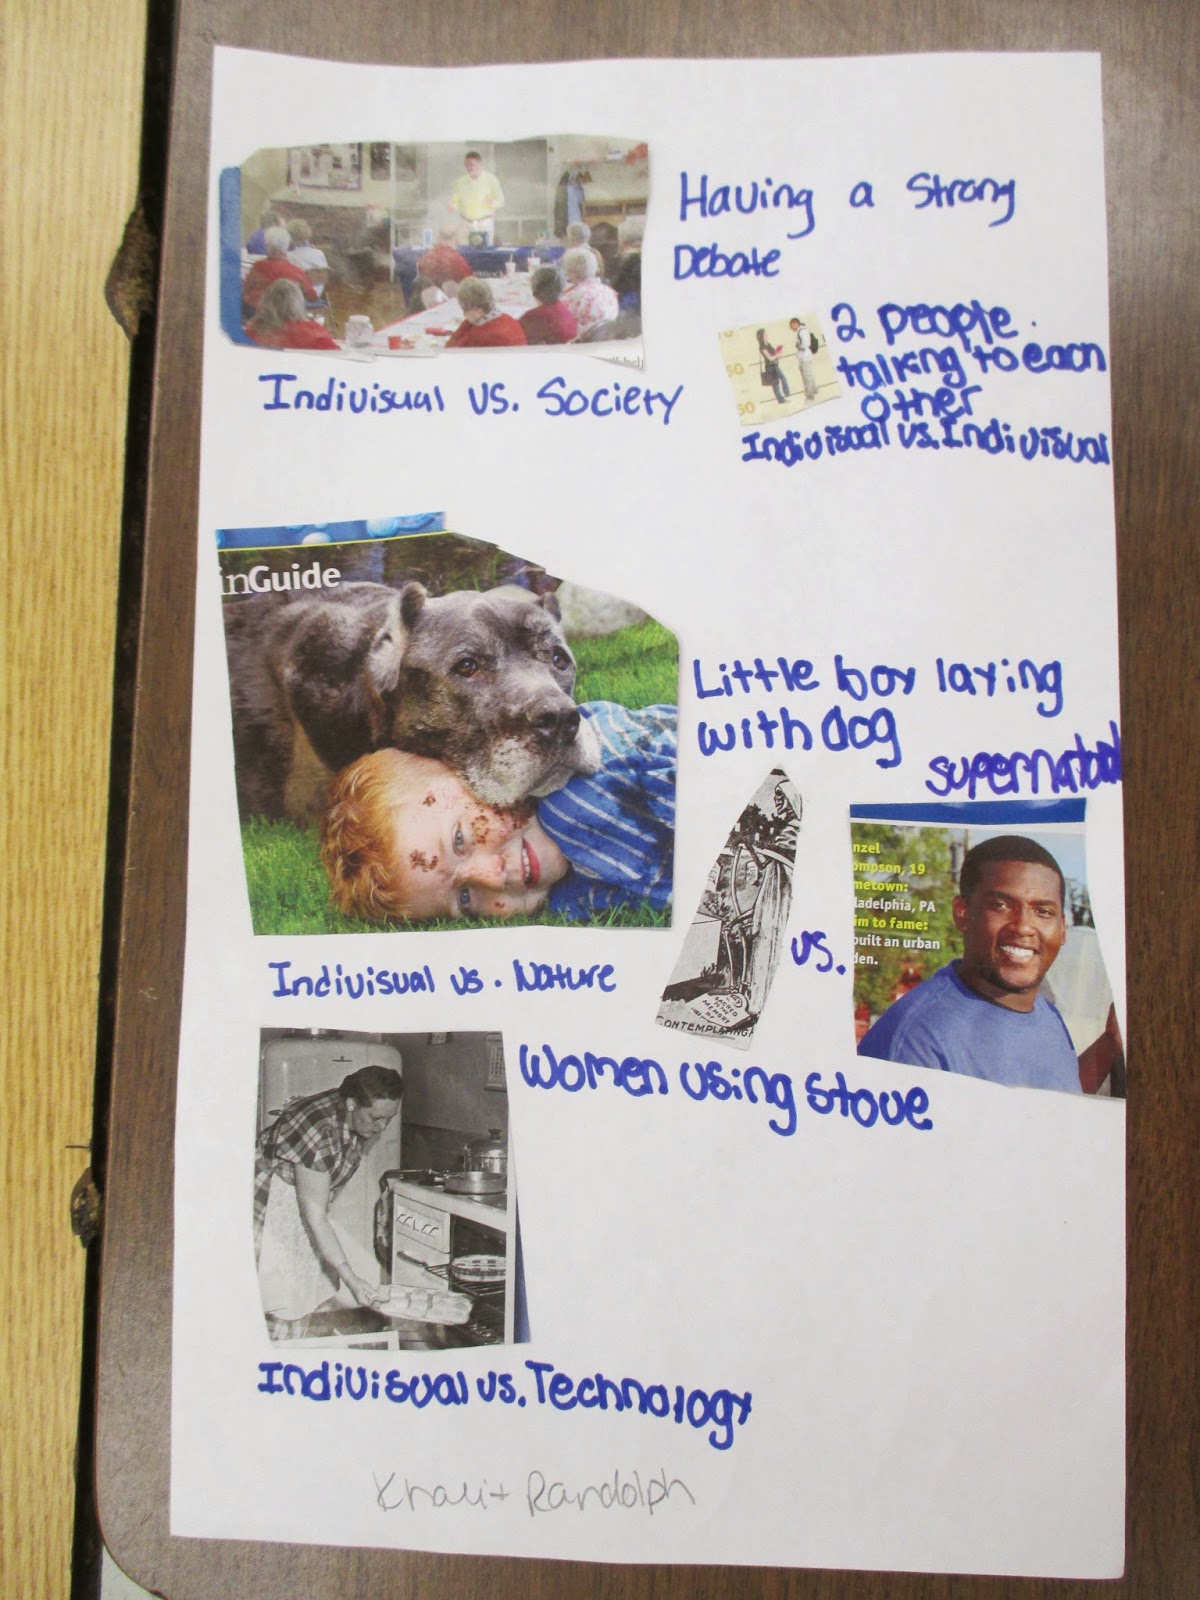 Having a Strong
Debate
Indivisual vs. Society
2 people
talking to each
other
Indivisual vs. Indivisual
50
50
inGuide
Little boy laying
with dog
supernatural
nzel
ompson, 19
metown:
ladelphia, PA
im to fame:
built an urban
den.
vs.
SACRED
TO THE
MEMORY
OF
CONTEMPLATING
Indivisual vs. Nature
Women using stove
Indivisual vs. Technology
Randolph